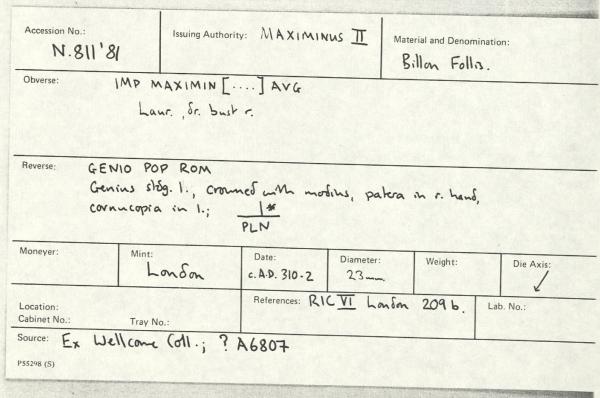 Accession No.:
N.811'81
Issuing Authority: MAXIMINUS II
Material and Denomination:
Billon Follis.
Obverse: IMP MAXIMIN [....] AVG
Laur., dr. bust r.
Reverse: GENIO POP ROM
Genius stdg. l., crowned with modius, patera in r. hand,
cornucopia in l.; |*
PLN
Moneyer:
Mint:
London
Date:
c.A.D. 310-2
Diameter:
23mm
Weight:
Die Axis:
↙
Location:
Cabinet No.: Tray No.:
References: RIC VI London 209b.
Lab. No.:
Source: Ex Wellcome Coll.; ? A6807
P55298 (S)